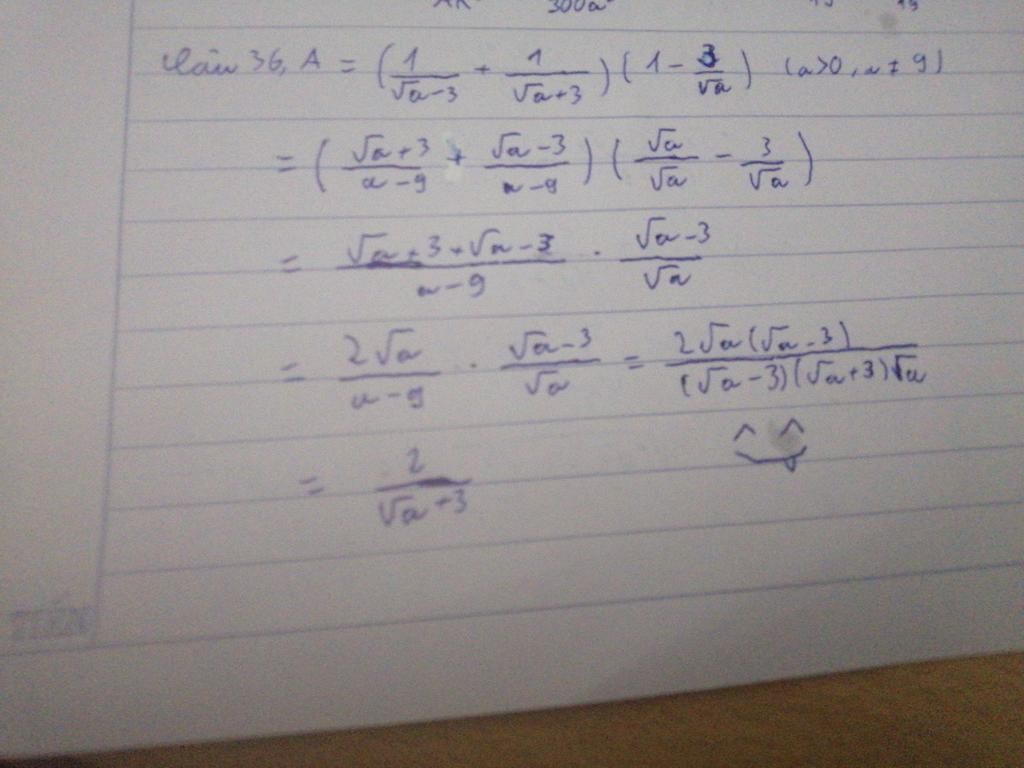 300a
Câu 36, A = (1/(√a-3) + 1/(√a+3)) (1 - 3/√a) (a>0, a≠9)
= ((√a+3)/(a-9) + (√a-3)/(a-9)) (√a/√a - 3/√a)
= (√a+3+√a-3)/(a-9) · (√a-3)/√a
= 2√a/(a-9) · (√a-3)/√a = 2√a(√a-3)/((√a-3)(√a+3)√a)
= 2/(√a+3)